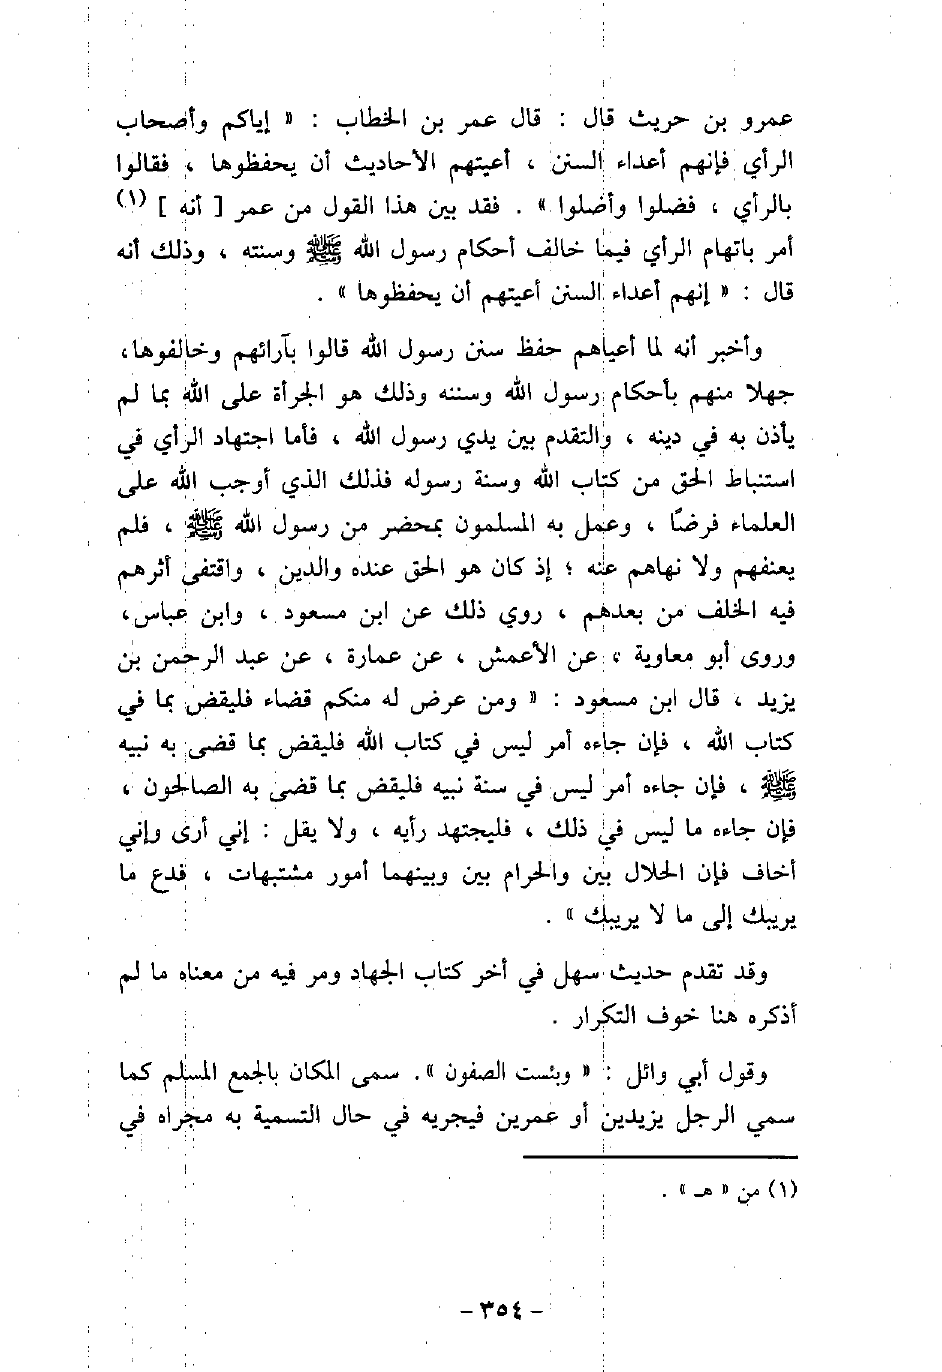 عمرو بن حريث قال : قال عمر بن الخطاب : « إياكم وأصحاب
الرأي فإنهم أعداء السنن ، أعيتهم الأحاديث أن يحفظوها ، فقالوا
بالرأي ، فضلوا وأضلوا » . فقد بين هذا القول من عمر [ أنه ] (١)
أمر باتهام الرأي فيما خالف أحكام رسول الله ﷺ وسنته ، وذلك أنه
قال : « إنهم أعداء السنن أعيتهم أن يحفظوها » .
وأخبر أنه لما أعياهم حفظ سنن رسول الله قالوا بآرائهم وخالفوها،
جهلا منهم بأحكام رسول الله وسننه وذلك هو الجرأة على الله بما لم
يأذن به في دينه ، والتقدم بين يدي رسول الله ، فأما اجتهاد الرأي في
استنباط الحق من كتاب الله وسنة رسوله فذلك الذي أوجب الله على
العلماء فرضًا ، وعمل به المسلمون بمحضر من رسول الله ﷺ ، فلم
يعنفهم ولا نهاهم عنه ؛ إذ كان هو الحق عنده والدين ، واقتفى أثرهم
فيه الخلف من بعدهم ، روي ذلك عن ابن مسعود ، وابن عباس،
وروى أبو معاوية ، عن الأعمش ، عن عمارة ، عن عبد الرحمن بن
يزيد ، قال ابن مسعود : « ومن عرض له منكم قضاء فليقض بما في
كتاب الله ، فإن جاءه أمر ليس في كتاب الله فليقض بما قضى به نبيه
ﷺ ، فإن جاءه أمر ليس في سنة نبيه فليقض بما قضى به الصالحون ،
فإن جاءه ما ليس في ذلك ، فليجتهد رأيه ، ولا يقل : إني أرى وإني
أخاف فإن الحلال بين والحرام بين وبينهما أمور مشتبهات ، فدع ما
يريبك إلى ما لا يريبك » .
وقد تقدم حديث سهل في أخر كتاب الجهاد ومر فيه من معناه ما لم
أذكره هنا خوف التكرار .
وقول أبي وائل : « وبئست الصفون ». سمى المكان بالجمع المسلم كما
سمي الرجل يزيدين أو عمرين فيجريه في حال التسمية به مجراه في
(١) من « هـ » .
- ٣٥٤ -